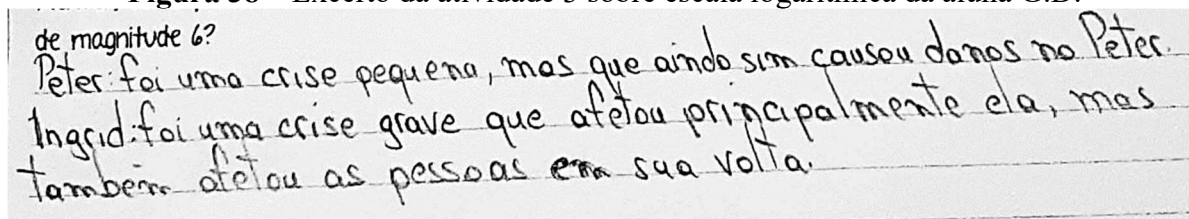 de magnitude 6?
Peter: foi uma crise pequena, mas que ainda sim causou danos no Peter.
Ingrid: foi uma crise grave que afetou principalmente ela, mas
também afetou as pessoas em sua volta.